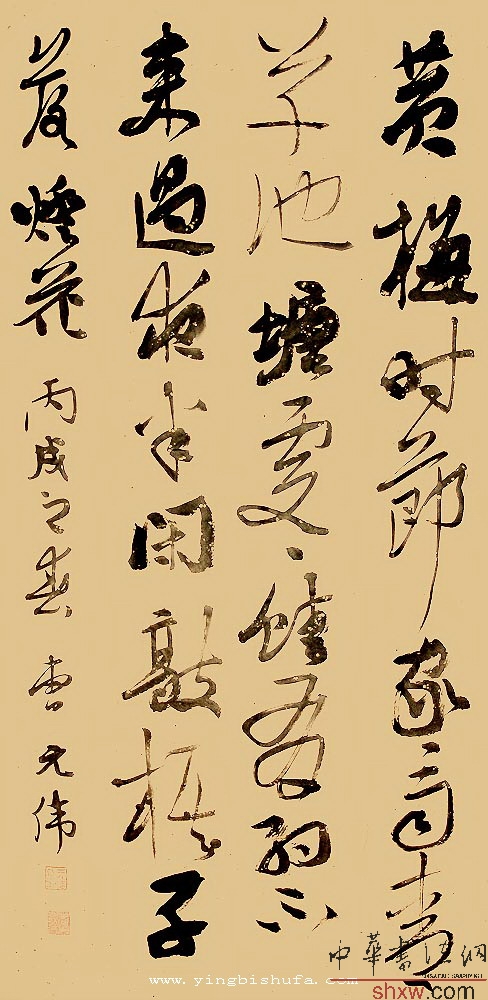 黄梅时節家〻雨青
草池塘處〻蛙有约不
来過夜半闲敲棋子
落燈花 丙戌之春 曹元伟
中華書法網
shxw.com
www.yingbishufa.com